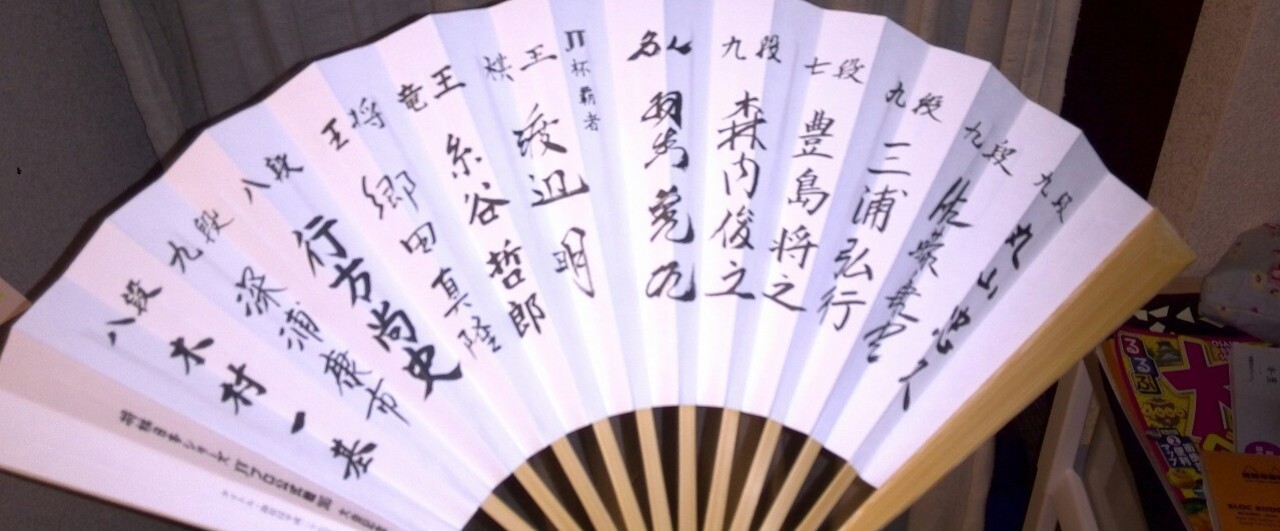 九段 丸山忠久
九段 佐藤康光
九段 三浦弘行
七段 豊島将之
九段 森内俊之
名人 羽生善治
JT杯覇者
棋王 渡辺明
竜王 糸谷哲郎
王将 郷田真隆
八段 行方尚史
九段 深浦康市
八段 木村一基
将棋日本シリーズ JTプロ公式戦
るるぶ